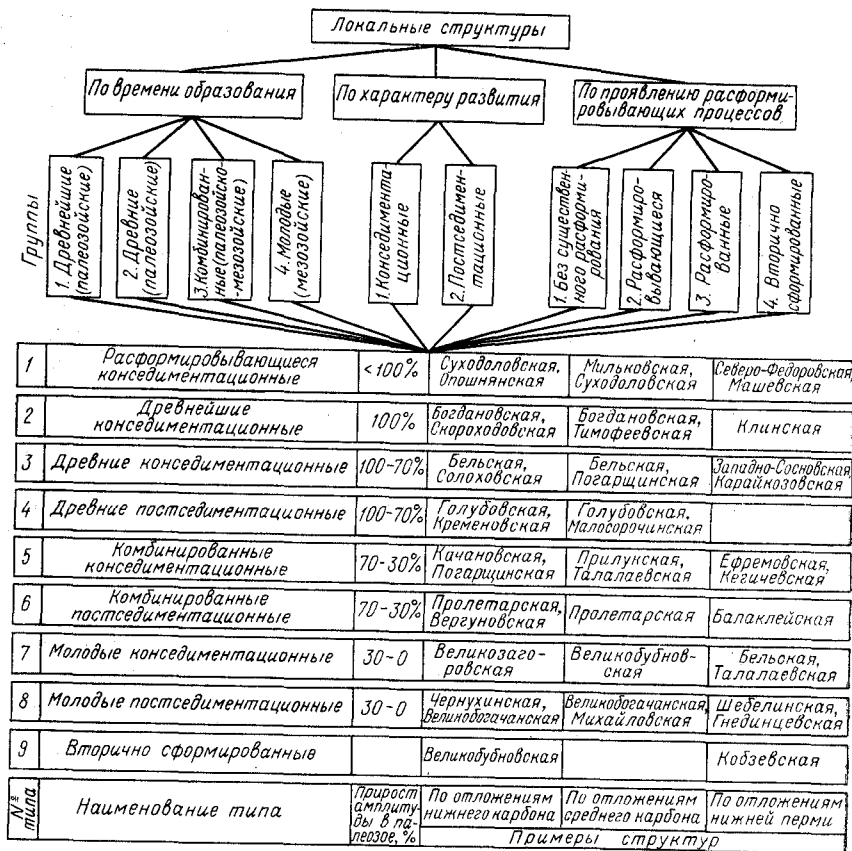 Локальные структуры
По времени образования
По характеру развития
По проявлению расформи-
ровывающих процессов
Группы
1. Древнейшие
(палеозойские)
2. Древние
(палеозойские)
3.Комбинирован-
ные(палеозойско-
-мезозойские)
4. Молодые
(мезозойские)
1.Конседимента-
ционные
2.Постседимен-
тационные
1.Без существен-
ного расформи-
рования
2. Расформиро-
вывающиеся
3. Расформиро-
ванные
4. Вторично
сформированные
1 Расформировывающиеся конседиментационные <100% Суходоловская, Опошнянская Мильковская, Суходоловская Северо-Федоровская, Машевская
2 Древнейшие конседиментационные 100% Богдановская, Скороходовская Богдановская, Тимофеевская Клинская
3 Древние конседиментационные 100-70% Бельская, Солоховская Бельская, Погарщинская Западно-Сосновская, Карайкозовская
4 Древние постседиментационные 100-70% Голубовская, Кременовская Голубовская, Малосорочинская
5 Комбинированные конседиментационные 70-30% Качановская, Погарщинская Прилукская, Талалаевская Ефремовская, Кегичевская
6 Комбинированные постседиментационные 70-30% Пролетарская, Вергуновская Пролетарская Балаклейская
7 Молодые конседиментационные 30-0 Великозаго-
ровская Великобубнов-
ская Бельская, Талалаевская
8 Молодые постседиментационные 30-0 Чернухинская, Великобогачанская Великобогачанская, Михайловская Шебелинская, Гнединцевская
9 Вторично сформированные Великобубновская Кобзевская
№ типа Наименование типа Прирост амплиту-
ды в па-
леозое, % По отложениям нижнего карбона По отложениям среднего карбона По отложениям нижней перми
Примеры структур